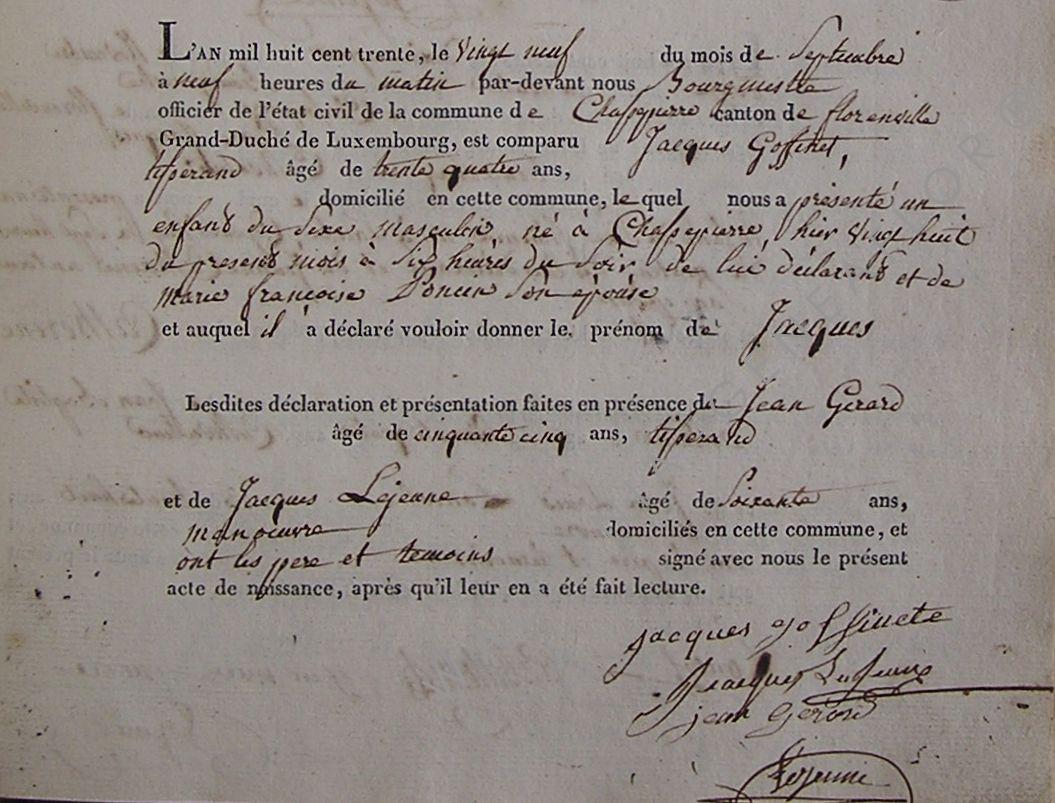 L'AN mil huit cent trente, le Vingt neuf du mois de Septembre
à neuf heures du matin par-devant nous Bourgmestre
officier de l'état civil de la commune de Chassepierre canton de florenville
Grand-Duché de Luxembourg, est comparu Jacques Goffinet,
tisserand âgé de trente quatre ans,
domicilié en cette commune, le quel nous a présenté un
enfant du Sexe masculin, né à Chassepierre, hier Vingt huit
du present mois à Six heures du Soir, de lui déclarant et de
Marie françoise Poncin Son épouse
et auquel il a déclaré vouloir donner le prénom de Jacques
Lesdites déclaration et présentation faites en présence de Jean Gerard
âgé de cinquante cinq ans, tisserand
et de Jacques Lejeune âgé de Soixante ans,
manoeuvre domiciliés en cette commune, et
ont les pere et temoins signé avec nous le présent
acte de naissance, après qu'il leur en a été fait lecture.
jacques goffinete
Jacques LeJeune
jean Gerard
Lejeune